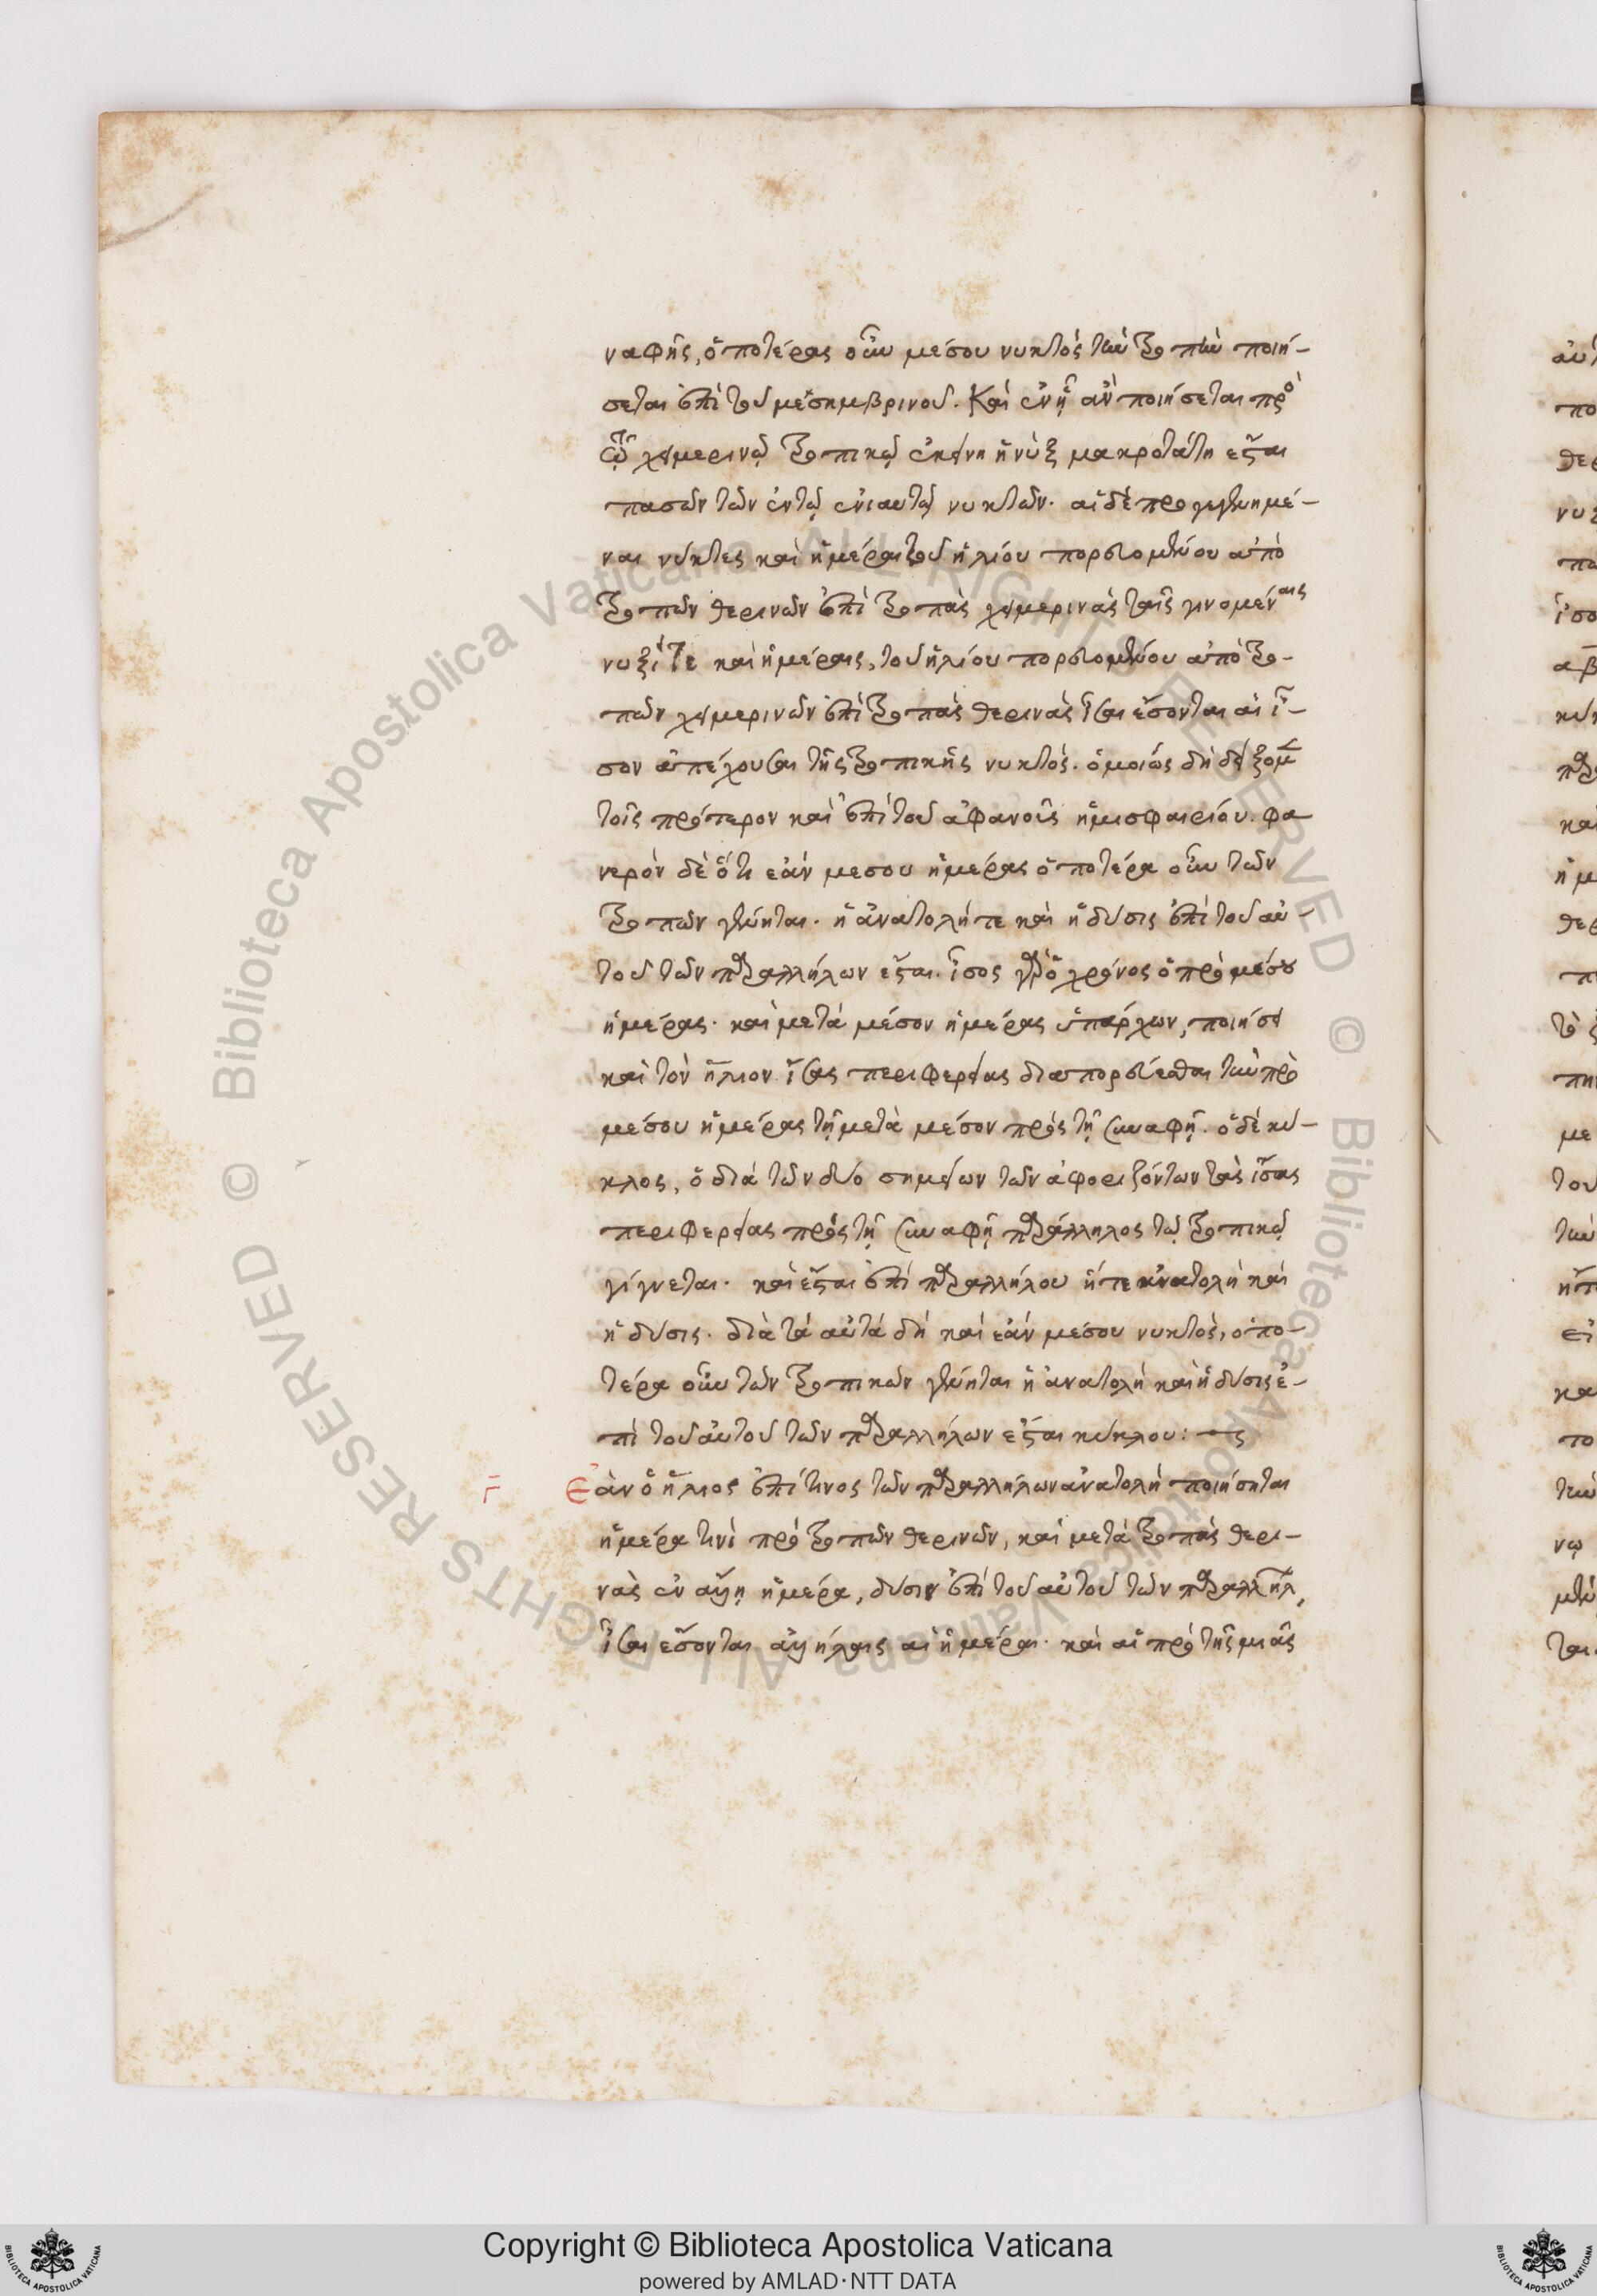 ναφῆς, ὁποτέρας οὖν μέσου νυκτὸς τὴν τροπὴν ποιή-
σεται ἐπὶ τοῦ μεσημβρινοῦ. Καὶ ἐν ᾗ ἂν ποιήσεται πρὸ
τῷ χειμερινῷ τροπικῷ ἐκείνη ἡ νὺξ μακροτάτη ἔσται
πασῶν τῶν ἐν τῷ ἐνιαυτῷ νυκτῶν. αἱ δὲ προγεγενημέ-
ναι νύκτες καὶ ἡμέραι τοῦ ἡλίου πορευομένου ἀπὸ
τροπῶν θερινῶν ἐπὶ τροπὰς χειμερινὰς ταῖς γινομέναις
νυξί τε καὶ ἡμέραις, τοῦ ἡλίου πορευομένου ἀπὸ τρο-
πῶν χειμερινῶν ἐπὶ τροπὰς θερινὰς ἴσαι ἔσονται αἱ ἴ-
σον ἀπέχουσαι τῆς τροπικῆς νυκτός. ὁμοίως δὴ δείξομεν
τοῖς πρότερον καὶ ἐπὶ τοῦ ἀφανοῦς ἡμισφαιρίου. φα
νερὸν δὲ ὅτι ἐὰν μεσου ἡμέρας ὁποτέρα οὖν τῶν
τροπῶν γένηται. ἡ ἀνατολή τε καὶ ἡ δύσις ἐπὶ τοῦ αὐ-
τοῦ τῶν παραλλήλων ἔσται. ἴσος γὰρ ὁ χρόνος ὁ πρὸ μέσου
ἡμέρας. καὶ μετὰ μέσον ἡμέρας ὑπάρχων, ποιήσει
καὶ τὸν ἥλιον ἴσας περιφερείας διαπορεύεσθαι τὴν πρὸ
μέσου ἡμέρας τῇ μετὰ μέσον πρὸς τῇ συναφῇ. ὁ δὲ κύ-
κλος, ὁ διὰ τῶν δύο σημείων τῶν ἀφοριζόντων τὰς ἴσας
περιφερείας πρὸς τῇ συναφῇ παράλληλος τῷ τροπικῷ
γίγνεται. καὶ ἔσται ἐπὶ παραλλήλου ἥ τε ἀνατολὴ καὶ
ἡ δύσις. διὰ τὰ αὐτὰ δὴ καὶ ἐὰν μέσου νυκτὸς, ὁπο-
τέρα οὖν τῶν τροπικῶν γένηται ἡ ἀνατολὴ καὶ ἡ δύσις ἐ-
πὶ τοῦ αὐτοῦ τῶν παραλλήλων ἔσται κύκλου:
Γ Ἐὰν ὁ ἥλιος ἐπί τινος τῶν παραλλήλων ἀνατολὴ ποιήσηται
ἡμέρα τινὶ πρὸ τροπῶν θερινῶν, καὶ μετὰ τροπὰς θερι-
νὰς ἐν ἄλλῃ ἡμέρα, δύσιν ἐπὶ τοῦ αὐτοῦ τῶν παραλλήλ,
ἴσαι ἔσονται ἀλλήλαις αἱ ἡμέραι. καὶ αἱ πρὸ τῆς μιᾶς